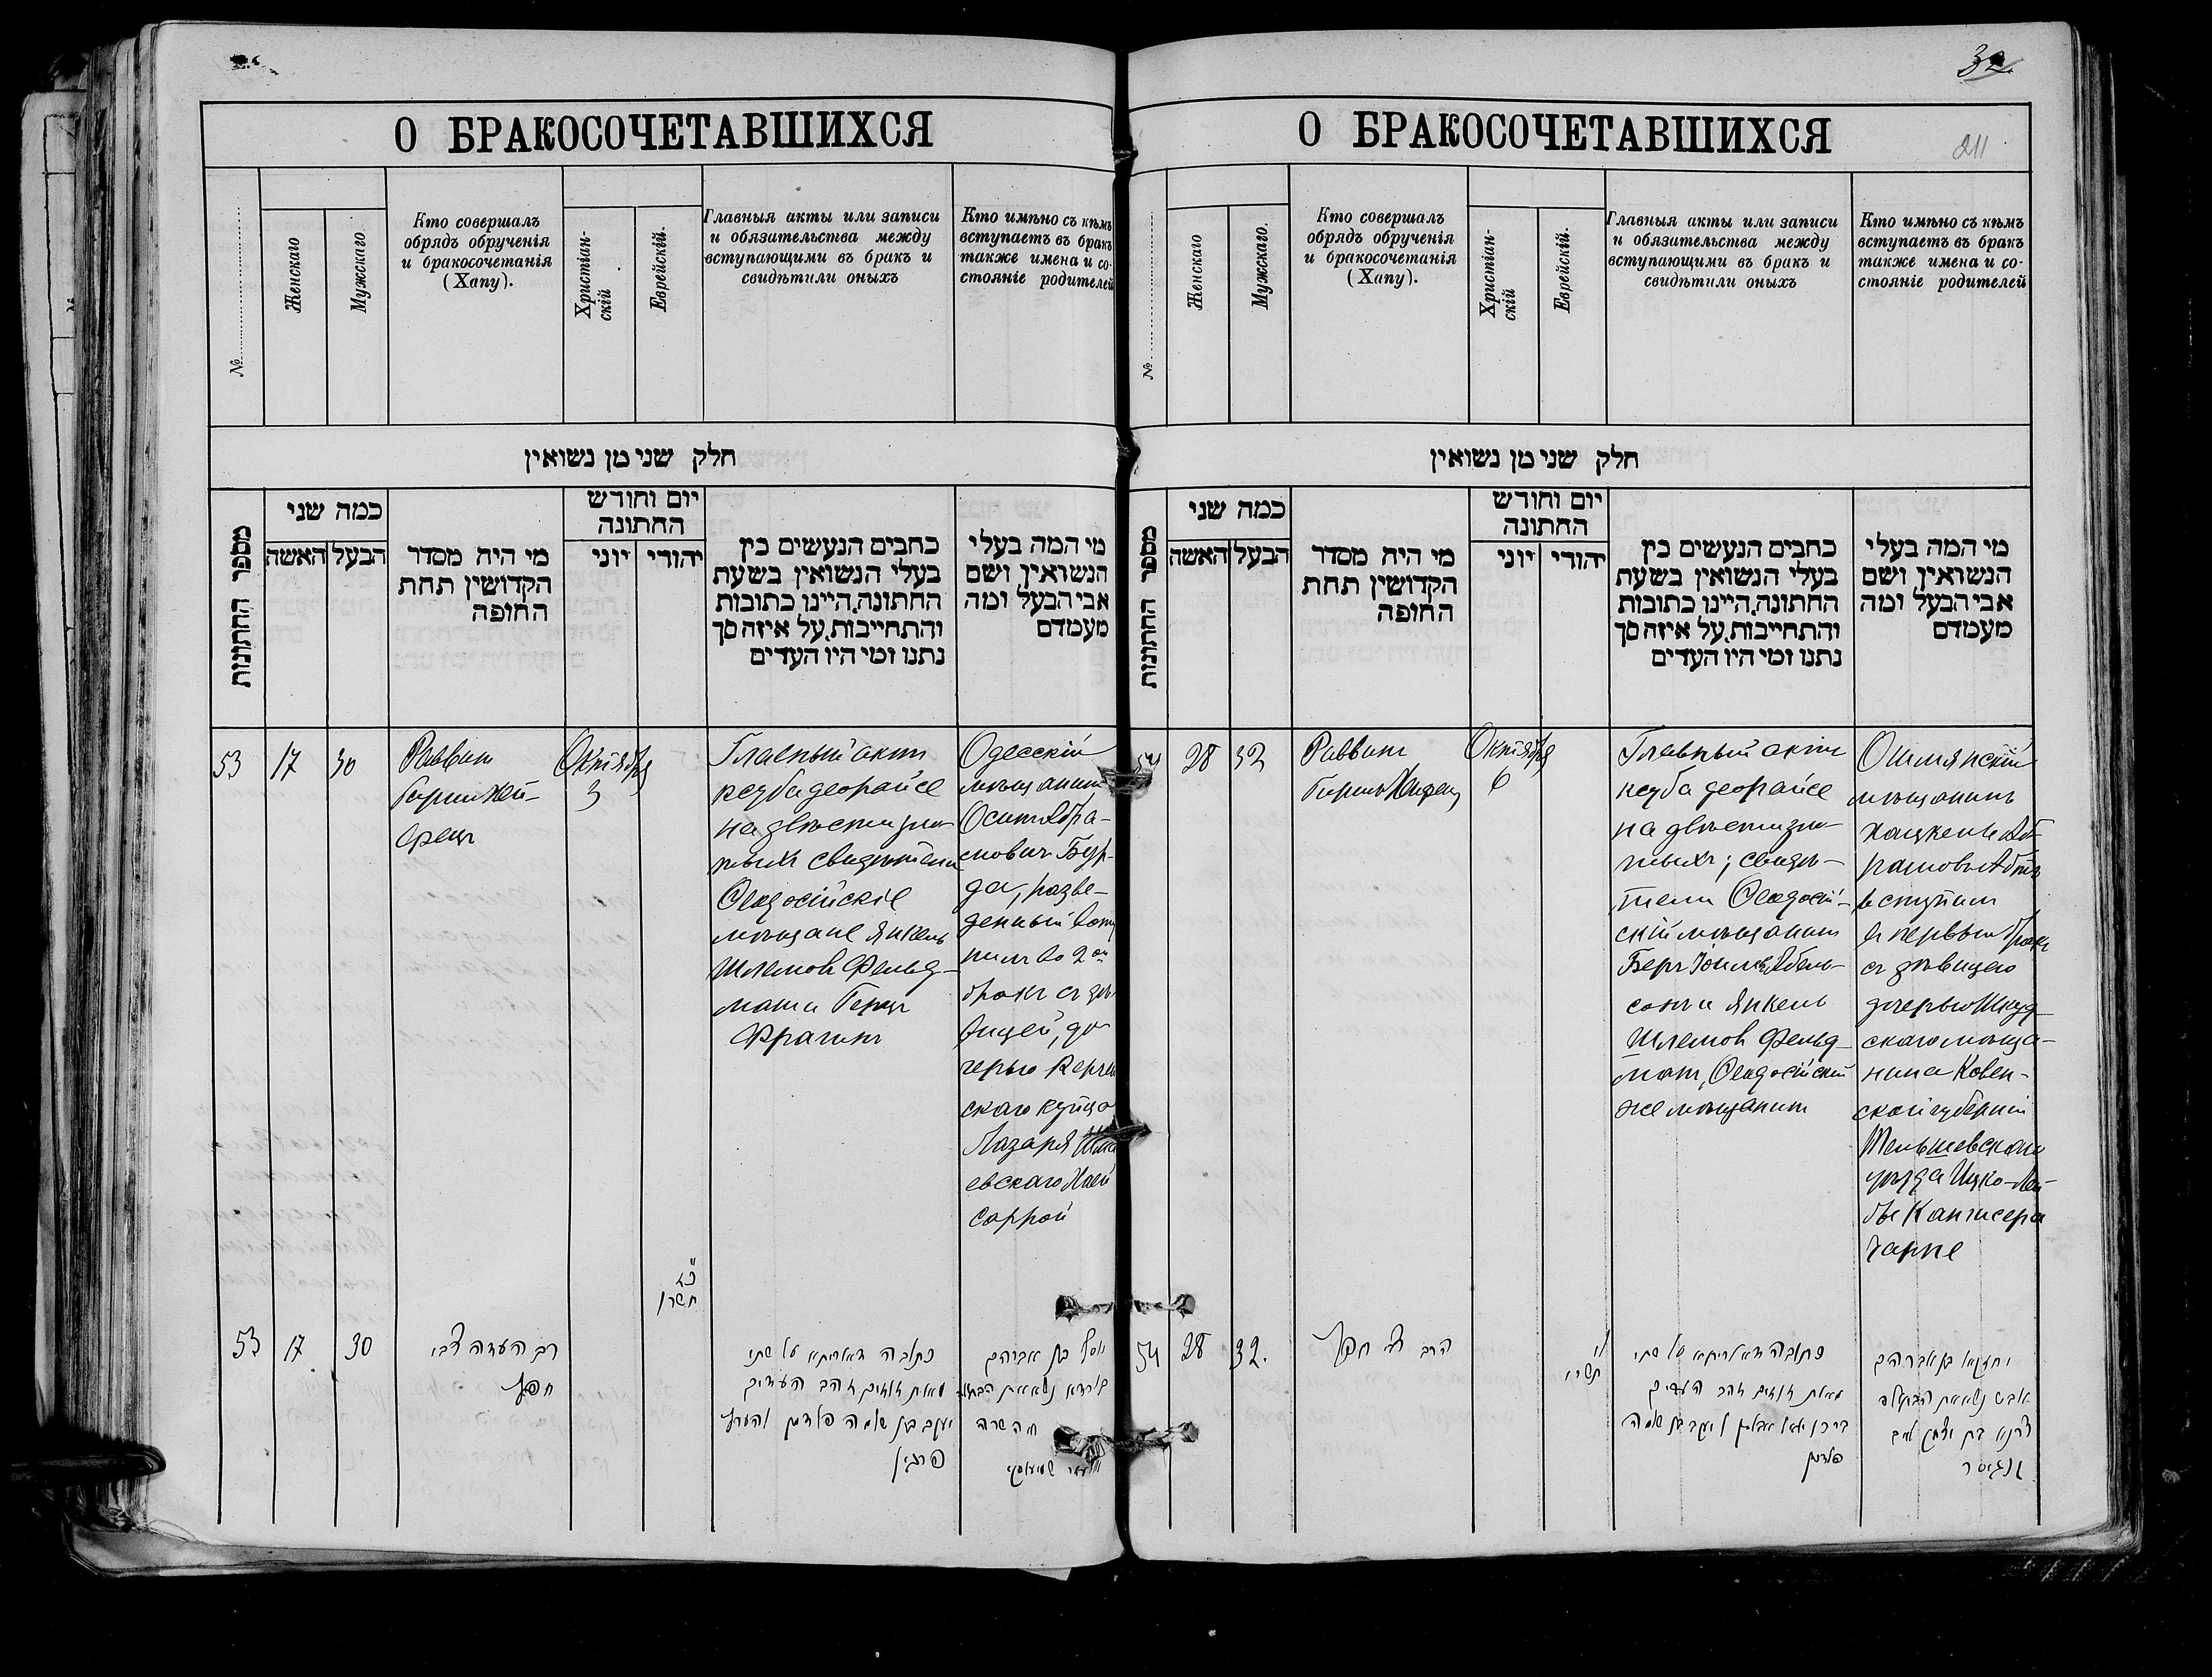 32.
О БРАКОСОЧЕТАВШИХСЯ
№
Женскаго
Мужскаго
Кто совершалъ
обрядъ обрученія
и бракосочетанія
(Хапу).
Христіан-
скій
Еврейскій.
Главныя акты или записи
и обязательства между
вступающими въ бракъ и
свидѣтили оныхъ
Кто имѣно съ кѣмъ
вступаетъ въ бракъ
также имена и со-
стояніе родителей
חלק שני מן נשואין
מספר החתונות
כמה שני
האשה
הבעל
מי היה מסדר
הקדושין תחת
החופה
יום וחודש
החתונה
יוני
יהודי
כתבים הנעשים בין
בעלי הנשואין בשעת
החתונה.היינו כתובות
והתחייבות.על איזה סך
נתנו ומי היו העדים
מי המה בעלי
הנשואין ושם
אבי הבעל ומה
מעמדם
53
17
30
Раввин
Гирш Хей-
фец
Октября
3
Главный акт
ксуба деорайсе
на двѣсти зло-
тыхъ свидѣтели
Ѳеодосійскіе
мѣщане Янкель
Шлемов Фельд-
ман и Герцъ
Фрагин
Одесскій
мѣщанин
Осип Абра-
мович Бур-
да, разве-
денный всту
пил во 2ой
бракъ съ дѣ
вицей, до-
черью Керчен
скаго купца
Лазаря
евскаго Хаей
Саррой
כד
חשון
53
17
30
רב העדה צבי
חפץ
כתובה דאוריתא על שתי
מאות זהובים זהב העדים
יעקב בן שלמה פלדמן והערץ
פרגין
יוסף בן אברהם
בורדא נשא את הבתולה
חיה שרה
О БРАКОСОЧЕТАВШИХСЯ
211
№
Женскаго
Мужскаго.
Кто совершалъ
обрядъ обрученія
и бракосочетанія
(Хапу).
Христіан-
скій
Еврейскій.
Главныя акты или записи
и обязательства между
вступающими въ бракъ и
свидѣтили оныхъ
Кто имѣно съ кѣмъ
вступаетъ въ бракъ
также имена и со-
стояніе родителей
חלק שני מן נשואין
מספר החתונות
כמה שני
האשה
הבעל
מי היה מסדר
הקדושין תחת
החופה
יום וחודש
החתונה
יוני
יהודי
כתבים הנעשים בין
בעלי הנשואין בשעת
החתונה.היינו כתובות
והתחייבות.על איזה סך
נתנו ומי היו העדים
מי המה בעלי
הנשואין ושם
אבי הבעל ומה
מעמדם
54
28
32
Раввин
Гирш Хайфец
Октября
6
Главный акт
ксуба деорайсе
на двѣсти зло-
тыхъ; свидѣ-
тели Ѳеодосій-
скій мѣщанин
Беръ Іоилев Абель-
сон и Янкель
Шлемов Фельд-
ман, Ѳеодосійский
же мѣщанин
Ошмянскій
мѣщанинъ
Хацкель Аб-
рамов
вступил
в первый бракъ
съ дѣвицею
дочерью Шкуд-
скаго мѣща-
нина Ковен-
ской губерніи
Тельшевскаго
уѣзда Ицко-Лей-
бы Кангисера
Чарне
תשרי
54
28
32.
הרב צבי חפץ
כתובה דאוריתא על שתי
מאות זהובים זהב העדים
יעקב בן שלמה
פלדמן
יחזקאל בן אברהם
נשא את הבתולה